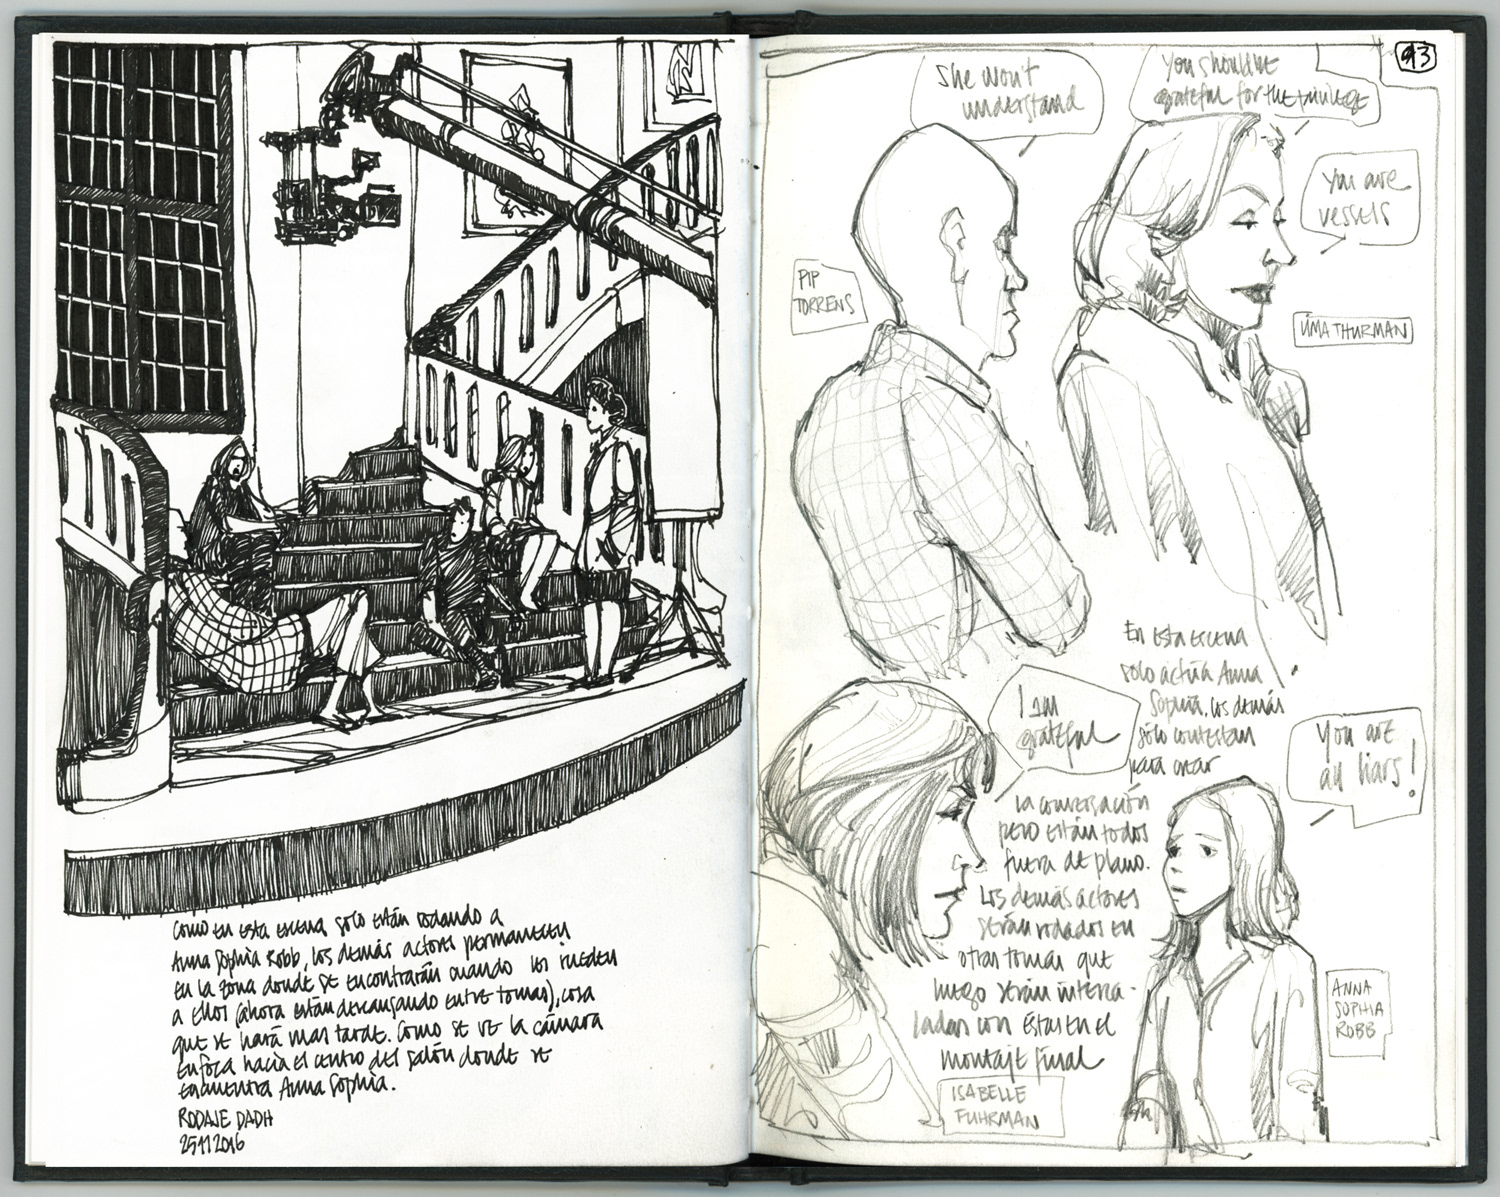 Como en esta escena solo están rodando a
Anna Sophia Robb, los demás actores permanecen
en la zona donde se encontrarán cuando les rueden
a ellos (ahora están descansando entre tomas), cosa
que se hará mas tarde. Como se ve la cámara
enfoca hacia el centro del salón donde se
encuentra Anna Sophia.
RODAJE DADH
25112016
93
She won't
understand
You should be
grateful for the privilege
You are
vessels
PIP
TORRENS
UMA THURMAN
En esta escena
solo actúa Anna
Sophia, los demás
sólo contestan
para crear
la conversación
pero están todos
fuera de plano.
Los demás actores
serán rodados en
otras tomas que
luego serán interca-
ladas con éstas en el
montaje final
I am
grateful
You are
all liars!
ANNA
SOPHIA
ROBB
ISABELLE
FUHRMAN